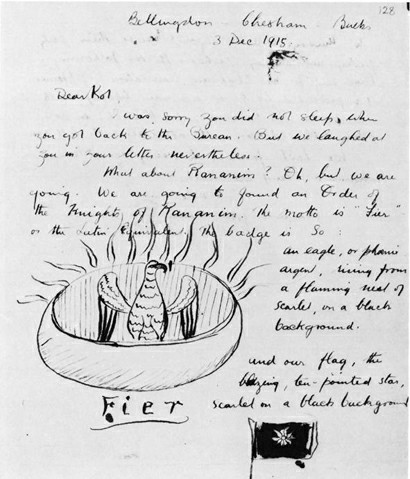 128
Bellingdon - Chesham - Bucks
3 Dec 1915
Dear Kot
was sorry you did not sleep, when
you got back to the Bureau. But we laughed at
you in your letter nevertheless.
What about Rananim? Oh, but we are
going. We are going to found an Order of
the Knights of Rananim. The motto is "Fier"
or the Latin equivalent. The badge is So:
an eagle, or phœnix
argent, rising from
a flaming nest of
scarlet, on a black
background.
And our flag, the
blazing, ten-pointed star,
scarlet on a black background
Fier